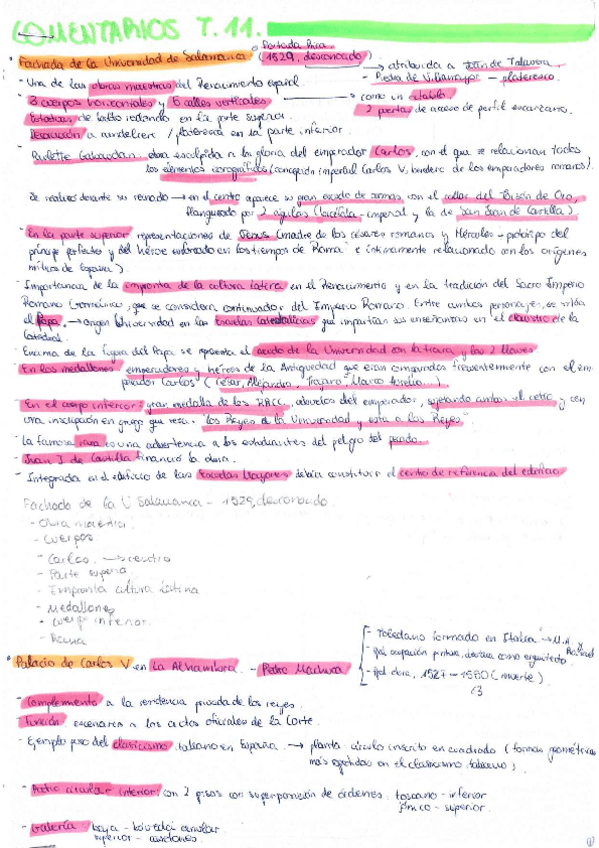 COMENTARIOS T. 11.
• Fachada de la Universidad de Salamanca (1529, desconocido) → atribuida a Juan de Talavera
Piedra de Villamayor - plateresco.
- Una de las obras maestras del Renacimiento español.
- 3 cuerpos horizontales y 5 calles verticales → como un retablo.
2 puertas de acceso de perfil escarzano.
- Esculturas de bulto redondo en la parte superior.
- Decoración a candelieri / plateresca en la parte inferior.
- Paulette Gabaudan: obra esculpida a la gloria del emperador Carlos, con el que se relacionan todos
los elementos iconográficos (concepción imperial Carlos V, heredero de los emperadores romanos).
Se realizó durante su reinado → en el centro aparece su gran escudo de armas, con el collar del Toisón de Oro,
flanqueado por 2 águilas (bicéfala - imperial y la de San Juan de Castilla)
- En la parte superior representaciones de Venus (madre de los césares romanos y Hércules - prototipo del
príncipe perfecto y del héroe en los tiempos de Roma e íntimamente relacionado con los orígenes
míticos de España)
- Importancia de la impronta de la cultura latina en el Renacimiento y en la tradición del Sacro Imperio
Romano Germánico, que se considera continuador del Imperio Romano. Entre ambos personajes, se sitúa
el Papa. → origen Universidad en las Escuelas Catedralicias que impartían sus enseñanzas en el claustro de la
Catedral.
- Encima de la figura del Papa se representa el escudo de la Universidad con la tiara y las 2 llaves.
- En los medallones emperadores y héroes de la Antigüedad que eran comparados frecuentemente con el em-
perador Carlos (César, Alejandro, Trajano, Marco Aurelio...)
- En el cuerpo inferior: gran medalla de los RRCC, abuelos del emperador, sujetando ambos el cetro y con
una inscripción en griego que reza: "los Reyes a la Universidad y esta a los Reyes"
- La famosa rana es una advertencia a los estudiantes del peligro del pecado.
- Juana I de Castilla financió la obra.
- Integrada en el edificio de las Escuelas Mayores debía constituir el centro de referencia del edificio.
Fachada de la U Salamanca - 1529, desconocido.
- Obra maestra
- Cuerpos
- Carlos → centro
- Parte superior
- Impronta cultura latina
- Medallones
- Cuerpo inferior.
- Rana
• Palacio de Carlos V en la Alhambra - Pedro Machuca
- Toledano formado en Italia
- ppal. ocupación pintura, destaca como arquitecto
- ppal. obra, 1527 - 1550 (muerte)
- Complemento a la residencia privada de los reyes.
- Función: escenario a los actos oficiales de la Corte.
- Ejemplo puro del clasicismo italiano en España. → planta: círculo inscrito en cuadrado (formas geométricas
más repetidas en el clasicismo italiano).
- Patio circular interior: con 2 pisos con superposición de órdenes: toscano - inferior
jónico - superior.
- Galería: baja - bóveda anular
superior - casetones.